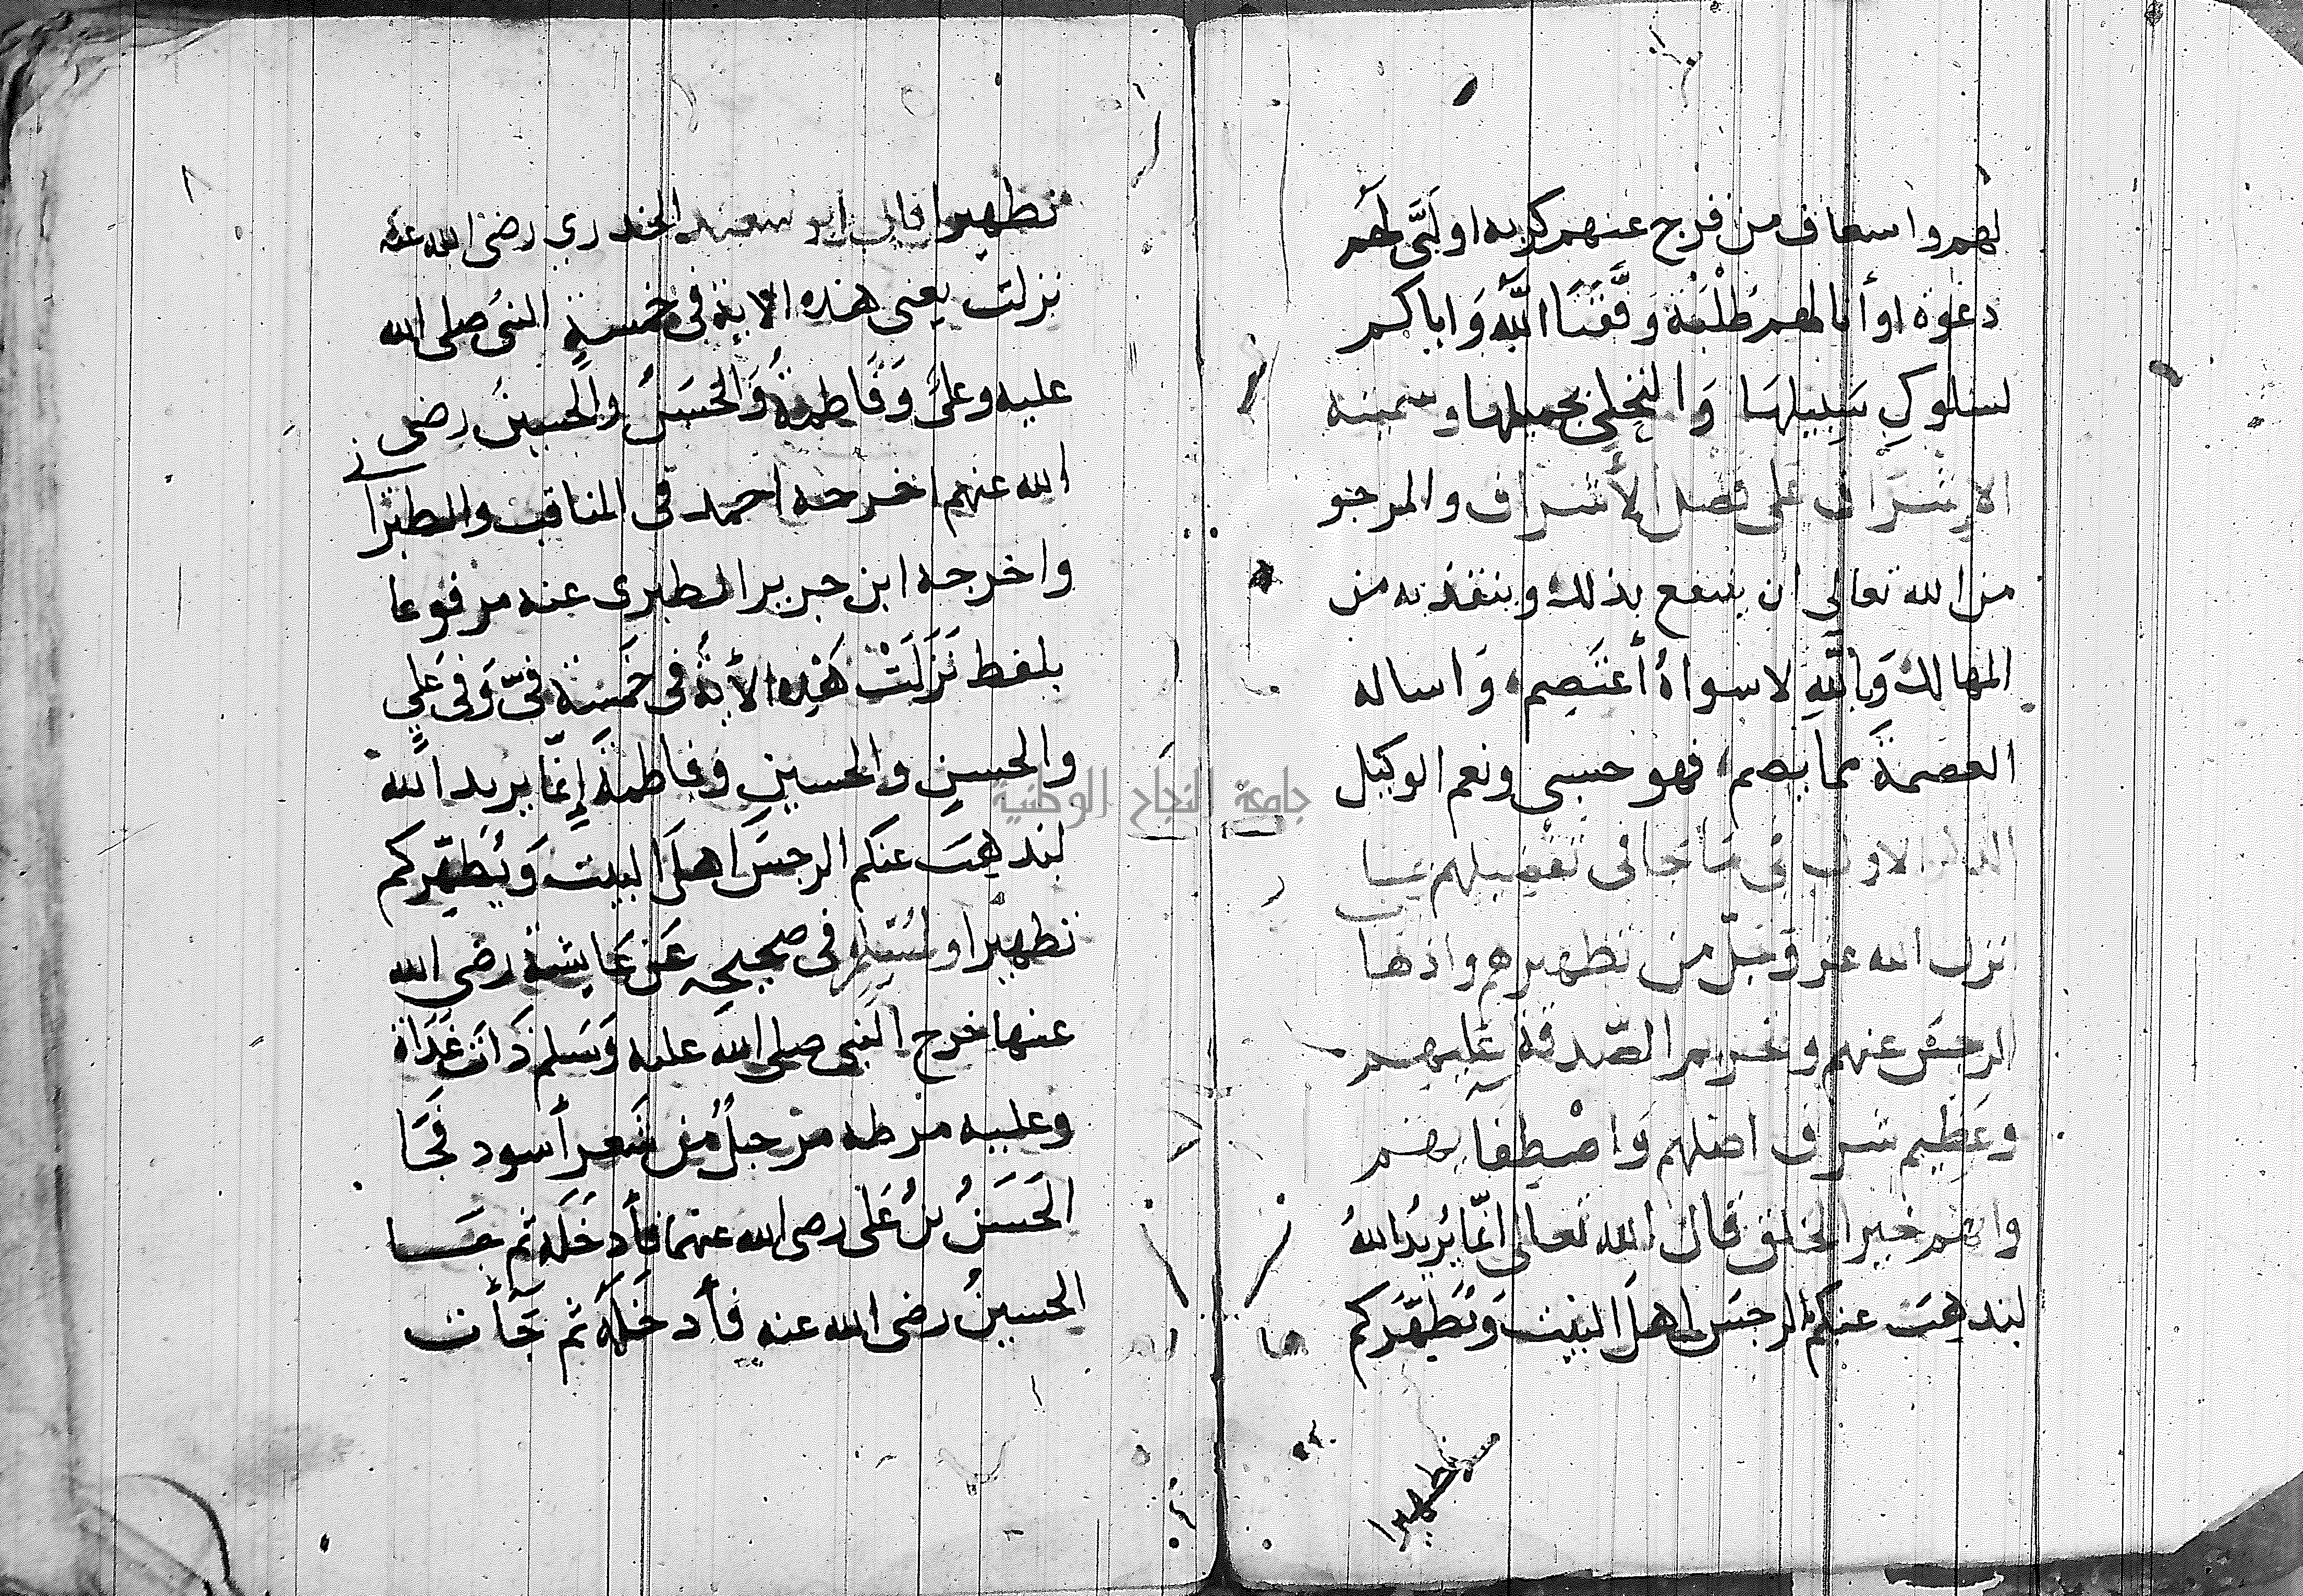 لهم واسعاف من فرج عنهم كربه او لبَّى لهم
دعوة او أنالهم طلْبة وفَّقنَا اللّه وَاياكم
لسلوكِ سَبيلهَا وَالتحلِي بجميلها وسميته
الإشرَاف عَلى فضل الأشراف والمرجو
من الله تعالى ان ينفع بذلك وينقذ به من
المهالك وَباللّهِ لا سواهُ أعتَصِم، وَاساله
العصمةَ مما يصم، فهو حسبى ونعم الوكيل
الاول فى مَا جَا فى تفضيلهم بمَا
نزل الله عز وَجلّ من تطهيرهم واذهاب
الرجسَ عنهم وتحريم الصّدقة عَليهم
وعَظِيم شرف اصلهم وَاصْطِفايهم
وانهم خير الخلق قال الله تعالى انّمَا يُريدُ اللهُ
ليذهِبَ عنكم الرجسَ اهلَ البَيت وَيُطَهِّرَكم
تطهيرا
تطهيرا قال ابو سعيد الخدري رضى الله عنه
نزلت يعنى هذه الاية فى خمسةٍ النبىُ صلى الله
عليه وعلىُ وَفَاطمةُ وَالحسَنُ وَالحسينُ رضى
الله عنهم اخرجه احمد فى المناقب والطبرانى
واخرجه ابن جرير الطبرى عنه مرفوعا
بلفظ نَزَلَتْ هَذِه الأية فى خَمسة فىَّ وَفى عَلِي
والحسنِ والحسينِ وفاطمة إنمّا يريد الله
ليذهبَ عنكم الرجسَ اهلَ البيت وَيُطهِّركم
تطهيرا ولمُسْلِم فى صحيحِه عَن عَايشة رضى الله
عنها خرج النبى صلى الله عليه وَسَلم ذَاتَ غَدَاة
وعليه مرطه مرجلٌ من شَعر أسود فَجَا
الحَسَنُ بنُ عَلى رضى الله عنهما فأدخَلَه ثم جَا
الحسينُ رضى الله عنه فأدخَلَهُ ثم جَأت